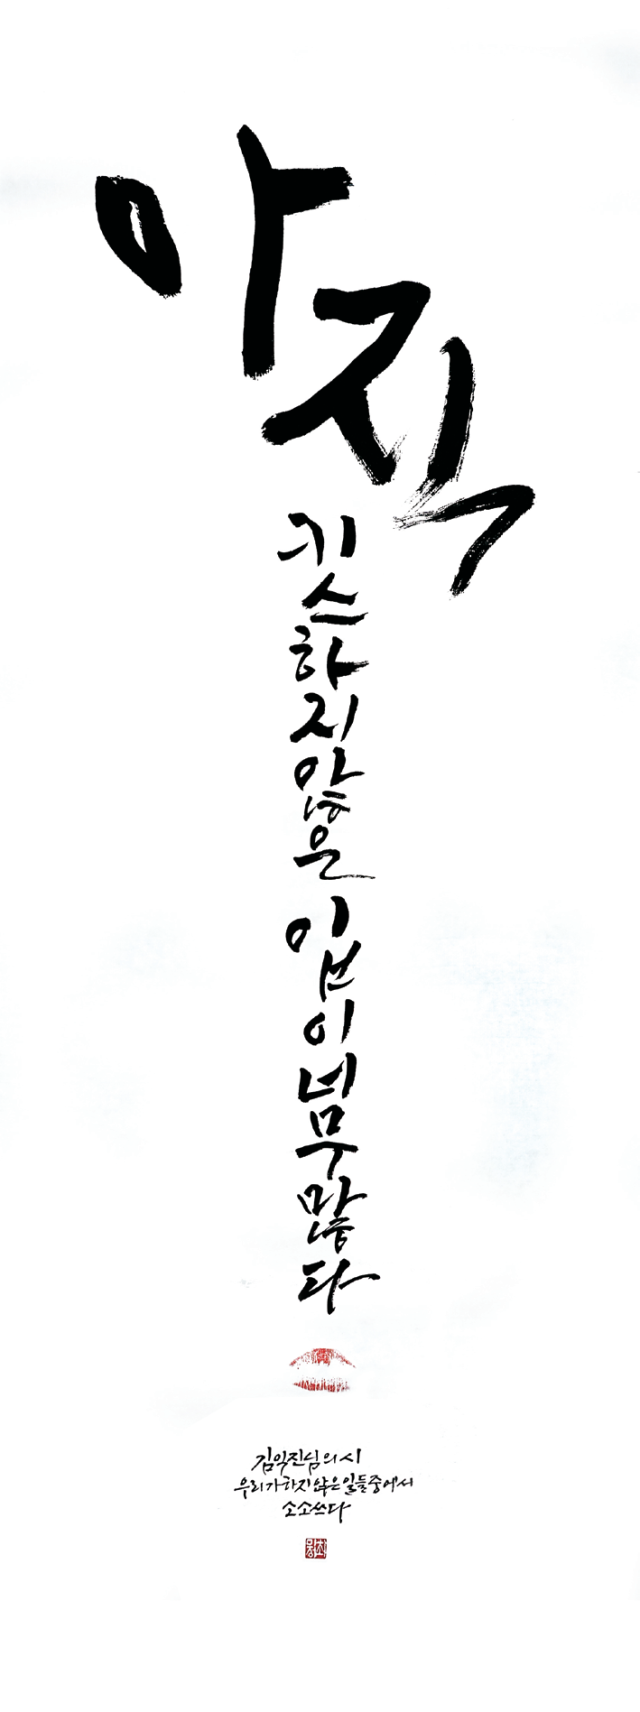 아직
키스하지않은
입이너무많다
김익진님의시
우리가하지않은일들중에서
소소쓰다